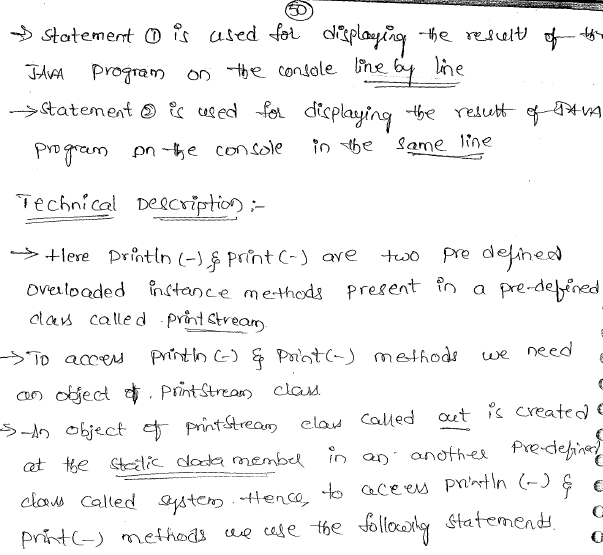 50
→ Statement ① is used for displaying the result of the
JAVA Program on the console line by line
→ Statement ② is used for displaying the result of JAVA
program on the console in the same line
Technical Description :-
→ Here println (-) & print (-) are two pre defined
overloaded instance methods present in a pre-defined
class called printstream.
→ To access println (-) & print(-) methods we need
an object of. printstream class.
→ An object of printstream class called out is created
at the static data member in an another pre-defined
class called system. Hence, to access println (-) &
print(-) methods we use the following statements.